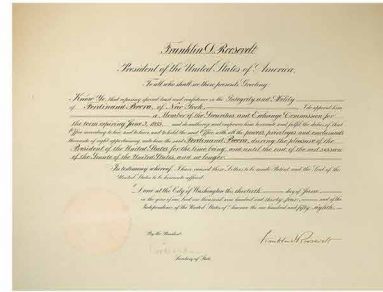 Franklin D. Roosevelt
President of the United States of America.
To all who shall see these presents, Greeting:
Know Ye, that reposing special trust and confidence in the Integrity and Ability
of Ferdinand Pecora, of New York, I do appoint him
a Member of the Securities and Exchange Commission for
the term expiring June 5, 1935, and do authorize and empower him to execute and fulfil the duties of that
Office according to law and to have and to hold the said Office, with all the powers, privileges and emoluments
thereunto of right appertaining, unto him the said Ferdinand Pecora, during the pleasure of the
President of the United States for the time being, and until the end of the next session
of the Senate of the United States, and no longer.
In testimony whereof, I have caused these Letters to be made Patent and the Seal of the
United States to be hereunto affixed.
Done at the City of Washington this thirtieth day of June
in the year of our Lord one thousand nine hundred and thirty-four, and of the
Independence of the United States of America the one hundred and fifty-eighth.
By the President:
Franklin D Roosevelt
Secretary of State.